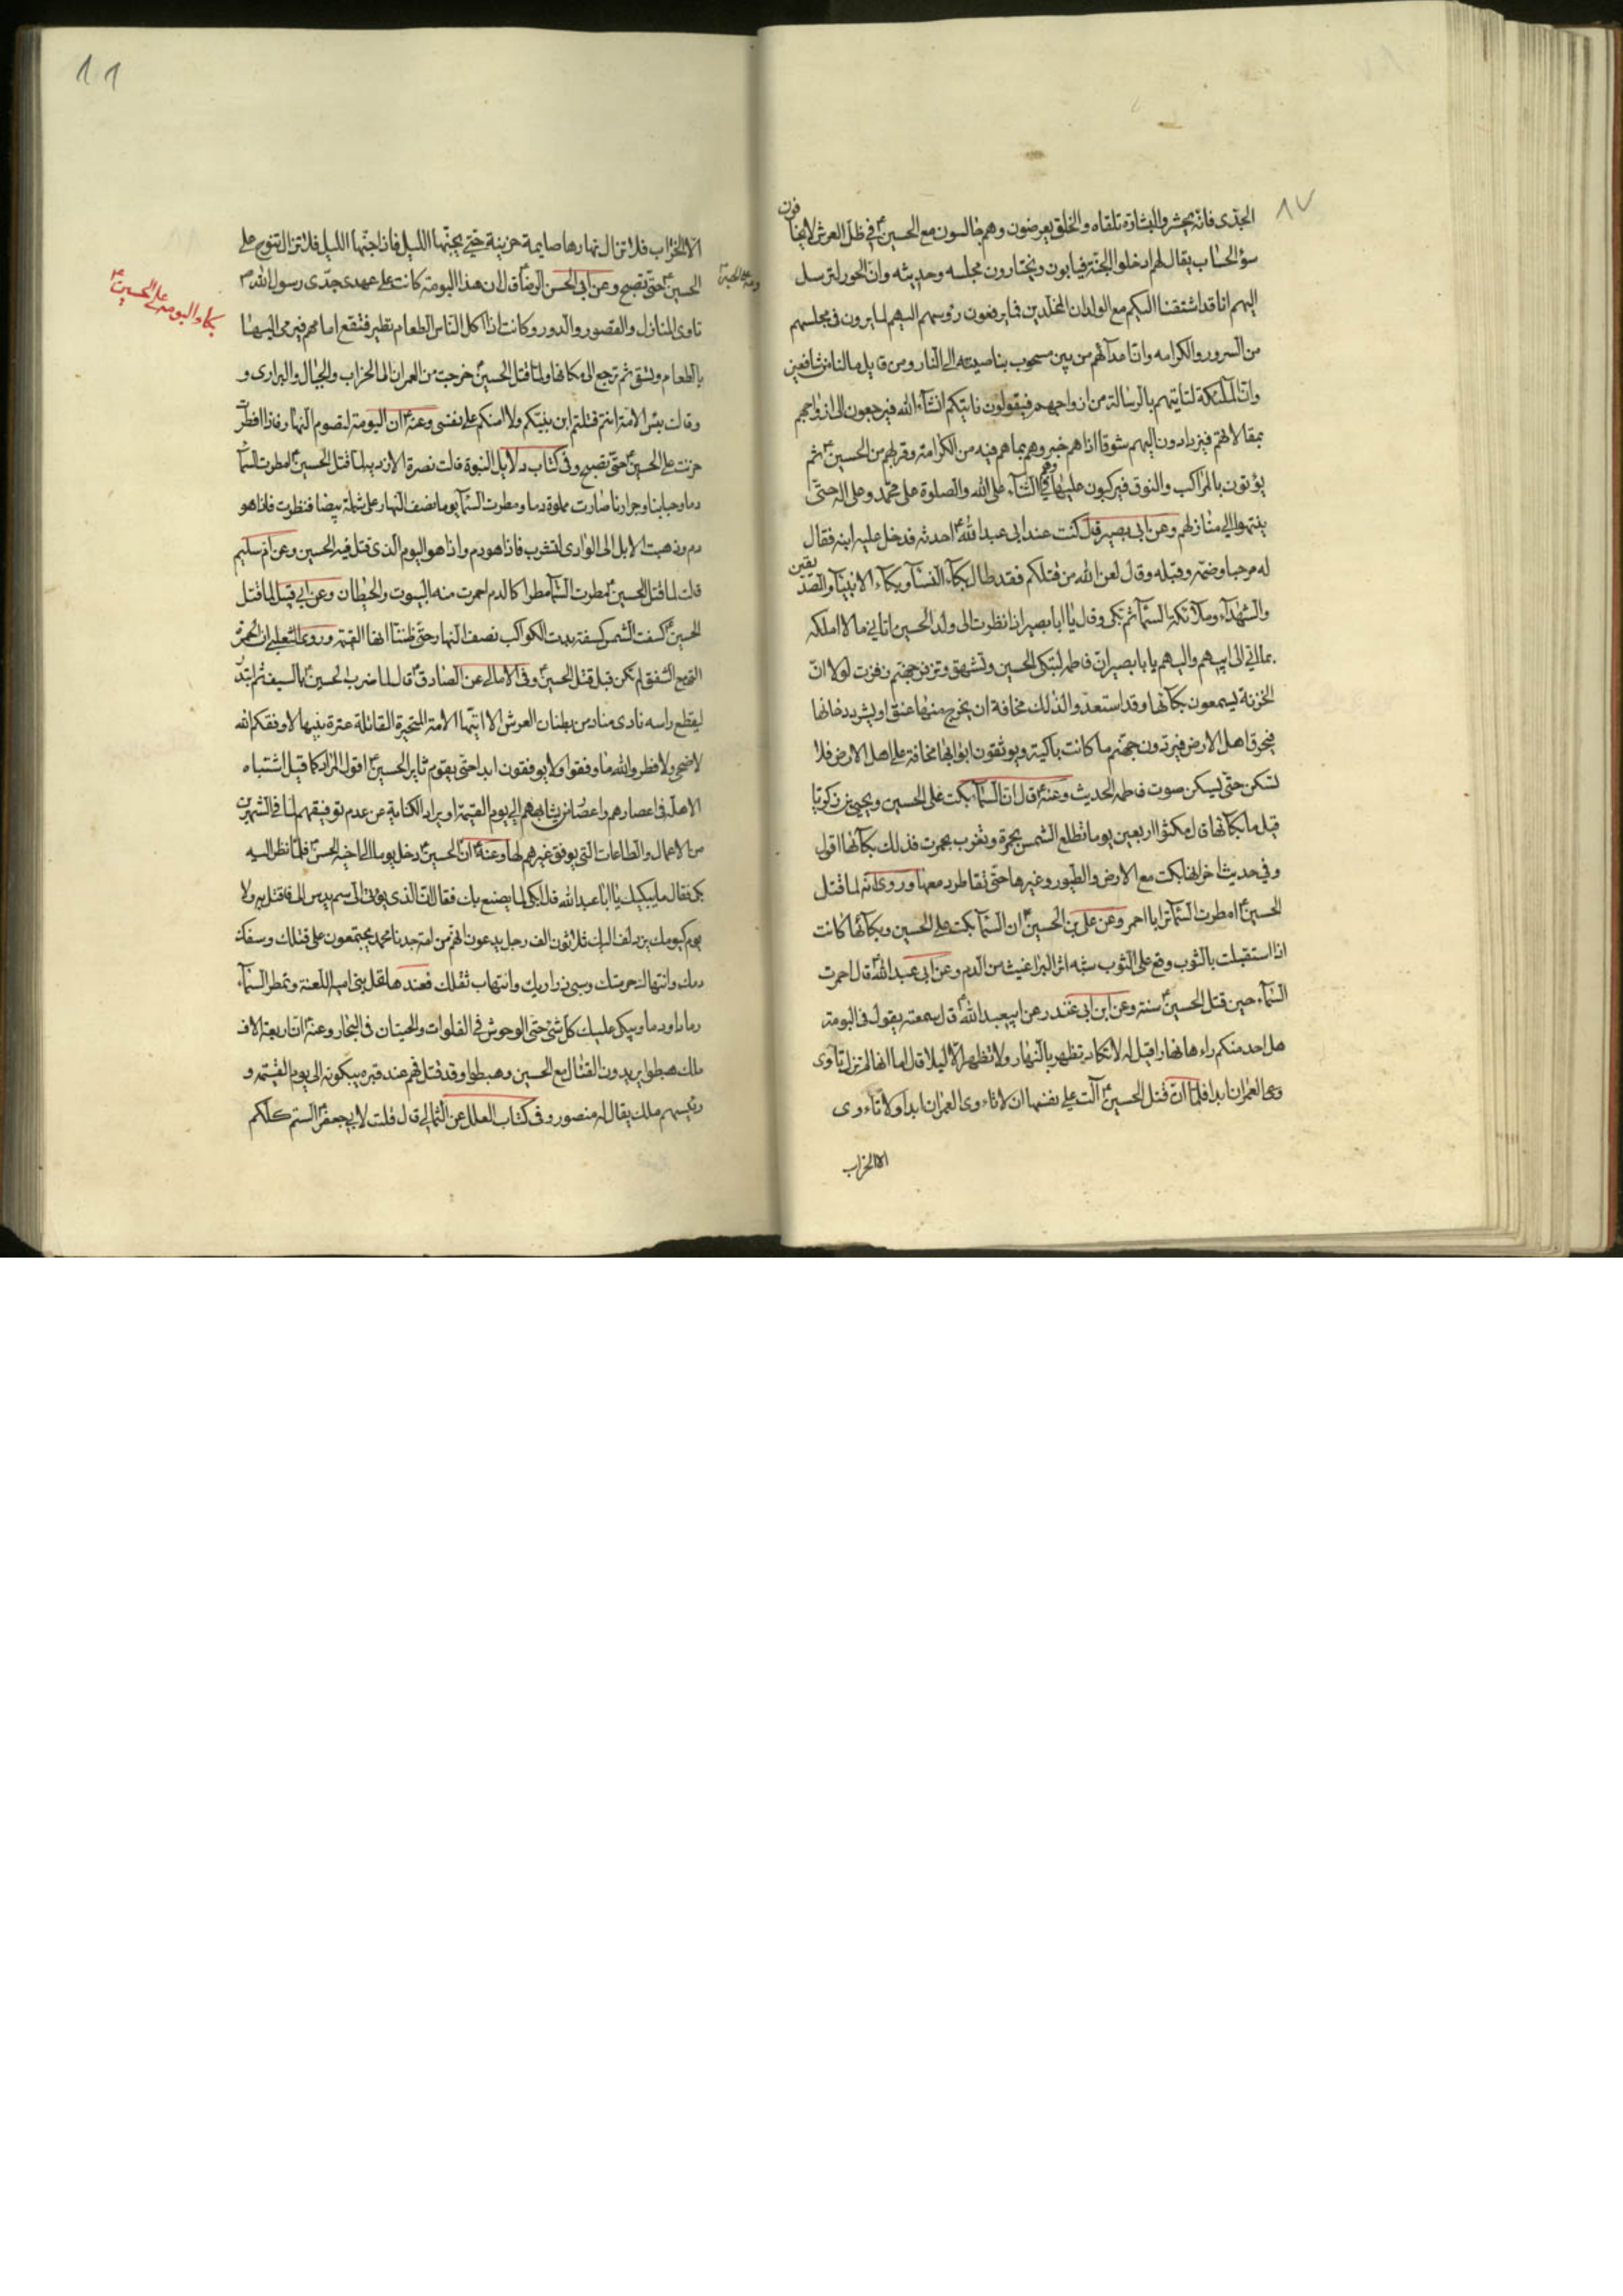 ٨٧
الجدى فانّه يحشر والبشارة تلقاه والخلق يعرضون وهم جالسون مع الحسين ع في ظل العرش لا يخافون
سؤ الحساب يقال لهم ادخلوا الجنّة فيابون ويختارون مجلسه وحديثه وانّ الحور لترسل
اليهم انا قد اشتقنا اليكم مع الولدان المخلدين فما يرفعون رؤسهم اليهم لما يرون في مجلسهم
من السرور والكرامه وانّ اعدآئهم من بين مسحوب بناصيته الى النار ومن قايل ما لنا من شافعين
وانّ الملئكة لتاتيهم بالرسالة من ازواجهم فيقولون ناتيكم انشآء الله فيرجعون الى ازواجهم
بمقالاتهم فيزدادون اليهم شوقا اذا هم خبروهم بما هم فيه من الكرامة وقربهم من الحسين ع ثم
يؤتون بالمراكب والنوق فيركبون عليها وهم في الثنآء على الله والصلوة على محمّد وعلى اله حتّى
ينتهوا الى منازلهم وعن ابى بصير قال كنت عند ابى عبد الله ع احدثه فدخل عليه ابنه فقال
له مرحبا وضمّه وقبله وقال لعن الله من قتلكم فقد طال بكآء النسآء وبكآء الانبيآء والصدّيقين
والشهدآء وملآئكة السمآء ثم بكى وقال يا ابا بصير اذا نظرت الى ولد الحسين اتانى ما لا املكه
بما اتى الى ابيهم واليهم يا ابا بصير انّ فاطمه لتبكى الحسين وتشهق وتزفر جهنّم زفرت لولا انّ
الخزنة يسمعون بكآئها وقد استعدّوا لذلك مخافة ان يخرج منها عنق او يشرد دخانها
فيحرق اهل الارض فيردّون جهنّم ما كانت باكية ويوثقون ابوابها مخافة على اهل الارض فلا
تسكن حتّى يسكن صوت فاطمه الحديث وعنه ع قال انّ السمآء بكت على الحسين ويحيى بن زكريّا
قيل ما بكآئها قال مكثوا اربعين يوما تطلع الشمس بحمرة وتغرب بحمرت فذلك بكآئها اقول
وفي حديث اخر انها بكت مع الارض والطيور وغيرها حتّى تقاطر دمعها وروى انّه لما قتل
الحسين ع امطرت السمآء ترابا احمر وعن على بن الحسين ع ان السمآء بكت على الحسين وبكآئها كانت
اذا استقبلت بالثوب وقع على الثوب شبه اثر البراغيث من الدم وعن ابى عبد الله ع قال احمرت
السمآء حين قتل الحسين ع سنة وعن ابن ابى غندر عن ابيعبد الله ع قال سمعته يقول فى البومة
هل احد منكم رءاها نهارا قيل له لا تكاد تظهر بالنهار ولا تظهر الّا ليلا قال اما انها لم تزل تاوى
العمران ابدا فلمّا ان قتل الحسين ع آلت على نفسها ان لا تاءوى العمران ابدا ولا تاءوى
الا الخراب
الّا الخراب فلا تزال نهارها صايمة حزينة حتّى يجنّها الليل فاذا جنّها الليل فلا تزال تنوح على
الحسين ع حتّى تصبح وعن ابى الحسن الرضا ع قال ان هذا البومة كانت على عهد جدّى رسول الله ص
تاوى المنازل والقصور والدور وكانت اذا اكل الناس الطعام تطير فتقع امامهم فيرمى اليها
بالطعام وتسق ثم ترجع الى مكانها ولمّا قتل الحسين ع خرجت من العمران الى الخراب والجبال والبرارى و
وقالت بئس الامّة انتم قتلتم ابن بنيّكم ولا امنكم على نفسى وعنه ع ان البومة لتصوم النهار فاذا افطرت
حزنت على الحسين ع حتّى تصبح وفى كتاب دلايل النبوة قالت نصرة الازديه لما قتل الحسين ع امطرت السمآء
دما وحبابنا وجرارنا صارت مملوة دما ومطرت السمآء يوما نصف النهار على شملة بيضا فنظرت فاذا هو
دم وذهبت الابل الى الوادى لتشرب فاذا هو دم واذا هو اليوم الذى قتل فيه الحسين وعن ام سليم
قالت لما قتل الحسين ع مطرت السمآء مطرا كالدم احمرت منه البيوت والحيطان وعن ابى قبيل لما قتل
الحسين ع كسفت الشمس كسفة بدت الكواكب نصف النهار حتّى ظننّا انها القيمة وروى الثعلبى ان الحمرة
التى مع الشفق لم تكن قبل قتل الحسين ع وفى الامالى عن الصادق ع قال لما ضرب الحسين ع بالسيف ثم ابتدر
ليقطع راسه نادى مناد من بطنان العرش الا ايّتها الامة المتحيرة القاتلة عترة نبيها لا وفقكم الله
لاضحى ولا فطر والله ما وفقوا ولا يوفقون ابدا حتّى يقوم ثاير الحسين ع اقول المراد كما قيل اشتباه
الاهلّة فى اعصارهم واعصار من يشابههم الى يوم القيمة او يراد الكناية عن عدم توفيقهم لما فى الشهرين
من الاعمال والطاعات التى يوفق غيرهم لها وعنه ع انّ الحسين ع دخل يوما الى اخيه الحسن ع فلمّا نظر اليه
بكى فقال ما يبكيك يا ابا عبد الله قال ابكى لما يصنع بك فقال انّ الذى يؤتى الى سم يدس الى فاقتل به ولا
يوم كيومك يزدلف اليك ثلاثون الف رجل يدعون انهم من امة جدنا محمد يجتمعون على قتلك وسفك
دمك وانتهاك حرمتك وسبى ذراريك وانتهاب ثقلك فعندها تحل ببنى اميه اللعنة وتمطر السمآء
رمادا ودما ويبكى عليك كل شئ حتّى الوحوش في الفلوات والحيتان فى البحار وعنه ع انّ اربعة الاف
ملك هبطوا يريدون القتال مع الحسين وهبطوا وقد قتل فهم عند قبره يبكونه الى يوم القيمه و
رئيسهم ملك يقال له منصور وفى كتاب العلل عن الثمالى قال قلت لابى جعفر ع الستم كلّكم
بكاء البومه على الحسين ع